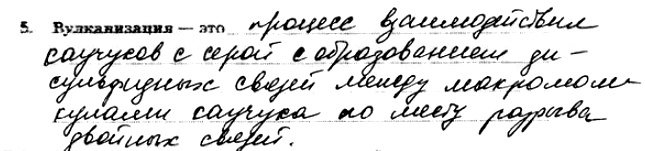 5. Вулканизация — это процесс взаимодействия
каучуков с серой с образованием ди-
сульфидных связей между макромоле-
кулами каучука по месту разрыва
двойных связей.